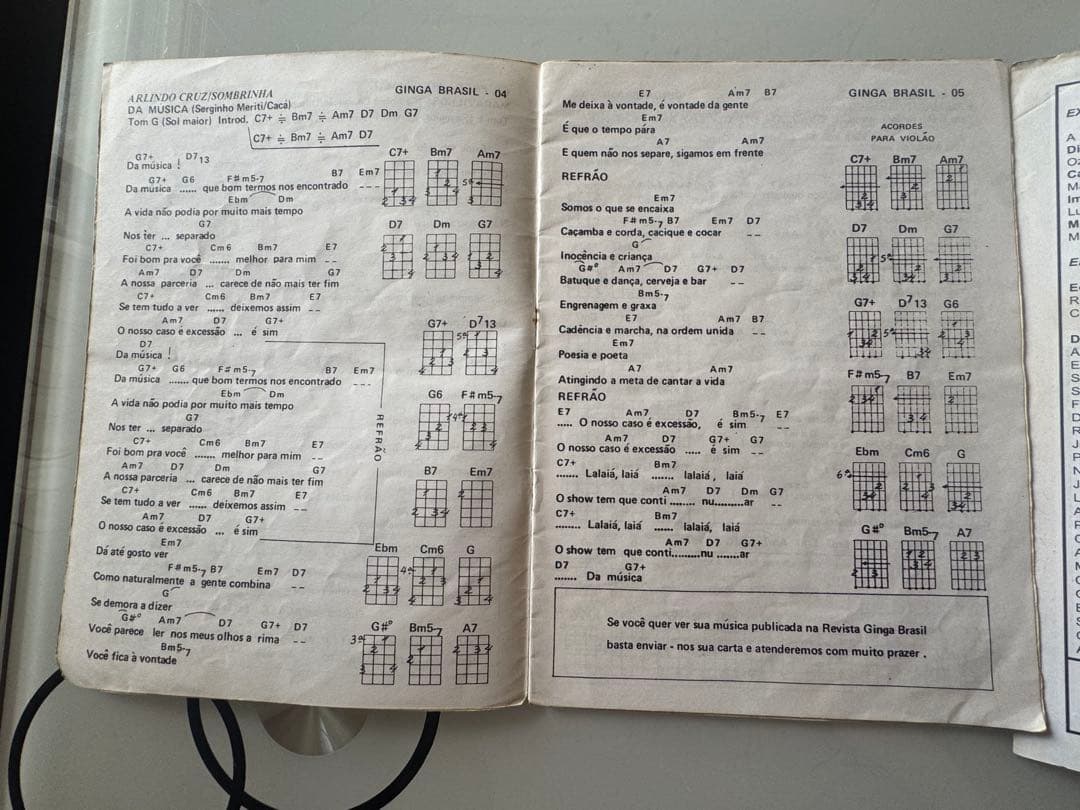 ARLINDO CRUZ/SOMBRINHA
GINGA BRASIL - 04
DA MÚSICA (Serginho Meriti/Cacá)
Tom G (Sol maior) Introd. C7+ ⁒ Bm7 ⁒ Am7 D7 Dm G7
C7+ ⁒ Bm7 ⁒ Am7 D7
G7+ D7 13
Da música !
G7+ G6 F#m5-7 B7 Em7
Da música ...... que bom termos nos encontrado _ _ _
Ebm Dm
A vida não podia por muito mais tempo
G7
Nos ter ... separado
C7+ Cm6 Bm7 E7
Foi bom pra você ....... melhor para mim _ _
Am7 D7 Dm G7
A nossa parceria ... carece de não mais ter fim
C7+ Cm6 Bm7 E7
Se tem tudo a ver ...... deixemos assim _ _
Am7 D7 G7+
O nosso caso é excessão ... é sim
D7
Da música !
G7+ G6 F#m5-7 B7 Em7
Da música ....... que bom termos nos encontrado _ _ _
Ebm Dm
A vida não podia por muito mais tempo
G7
Nos ter ... separado
C7+ Cm6 Bm7 E7
Foi bom pra você ....... melhor para mim _ _
Am7 D7 Dm G7
A nossa parceria ... carece de não mais ter fim
C7+ Cm6 Bm7 E7
Se tem tudo a ver ...... deixemos assim _ _
Am7 D7 G7+
O nosso caso é excessão ... é sim
REFRÃO
Em7
Dá até gosto ver
F#m5-7 B7 Em7 D7
Como naturalmente a gente combina _ _
G
Se demora a dizer
G#º Am7 D7 G7+ D7
Você parece ler nos meus olhos a rima _ _
Bm5-7
Você fica à vontade
C7+ Bm7 Am7
5ª
D7 Dm G7
G7+ D7 13
5ª
G6 F#m5-7
B7 Em7
Ebm Cm6 G
4ª
G#º Bm5-7 A7
3ª
GINGA BRASIL - 05
E7 Am7 B7
Me deixa à vontade, é vontade da gente
Em7
É que o tempo pára
A7 Am7
E quem não nos separe, sigamos em frente
REFRÃO
Em7
Somos o que se encaixa
F#m5-7 B7 Em7 D7
Caçamba e corda, cacique e cocar _ _
G
Inocência e criança
G#º Am7 D7 G7+ D7
Batuque e dança, cerveja e bar _ _
Bm5-7
Engrenagem e graxa
E7 Am7 B7
Cadência e marcha, na ordem unida _ _
Em7
Poesia e poeta
A7 Am7
Atingindo a meta de cantar a vida
REFRÃO
E7 Am7 D7 Bm5-7 E7
..... O nosso caso é excessão, é sim _ _
Am7 D7 G7+ G7
O nosso caso é excessão ..... é sim _ _
C7+ Bm7
....... Lalaiá, laiá ...... lalaiá , laiá
Am7 D7 Dm G7
O show tem que conti ........ nu.......ar _ _
C7+ Bm7
........ Lalaiá, laiá ...... lalaiá, laiá
Am7 D7 G7+
O show tem que conti.........nu .......ar
D7 G7+
....... Da música
ACORDES
PARA VIOLÃO
C7+ Bm7 Am7
D7 Dm G7
5ª
G7+ D7 13 G6
5ª
F#m5-7 B7 Em7
Ebm Cm6 G
6ª
G#º Bm5-7 A7
Se você quer ver sua música publicada na Revista Ginga Brasil
basta enviar - nos sua carta e atenderemos com muito prazer .